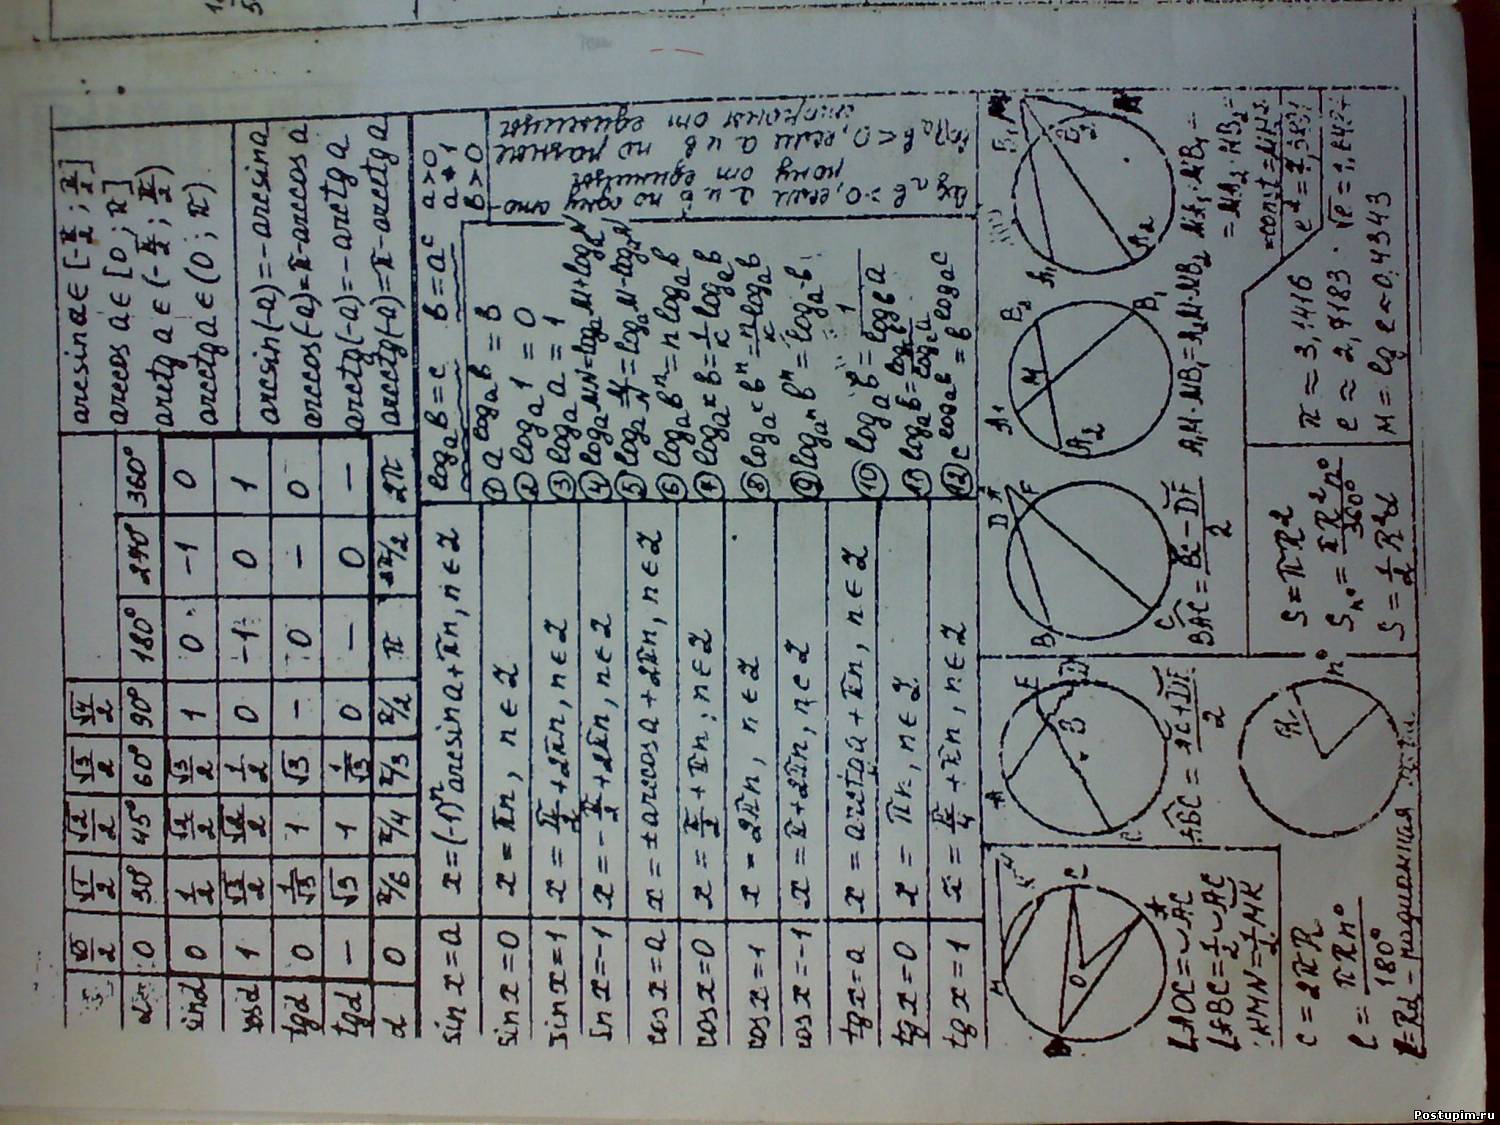 √0/2 √1/2 √2/2 √3/2 √4/2
α 0 30° 45° 60° 90° 180° 270° 360°
sinα 0 1/2 √2/2 √3/2 1 0 -1 0
cosα 1 √3/2 √2/2 1/2 0 -1 0 1
tgα 0 1/√3 1 √3 — 0 — 0
tgα — √3 1 1/√3 0 — 0 —
α 0 π/6 π/4 π/3 π/2 π 3π/2 2π
arcsin a ∈ [-π/2; π/2]
arccos a ∈ [0; π]
arctg a ∈ (-π/2; π/2)
arcctg a ∈ (0; π)
arcsin(-a) = -arcsin a
arccos(-a) = π-arccos a
arctg(-a) = -arctg a
arcctg(-a) = π-arcctg a
sin x = a x = (-1)ⁿ arcsin a + πn, n ∈ Z
sin x = 0 x = πn, n ∈ Z
sin x = 1 x = π/2 + 2πn, n ∈ Z
sin x = -1 x = -π/2 + 2πn, n ∈ Z
cos x = a x = ±arccos a + 2πn, n ∈ Z
cos x = 0 x = π/2 + πn, n ∈ Z
cos x = 1 x = 2πn, n ∈ Z
cos x = -1 x = π + 2πn, n ∈ Z
tg x = a x = arctg a + πn, n ∈ Z
tg x = 0 x = πn, n ∈ Z
tg x = 1 x = π/4 + πn, n ∈ Z
logₐ b = c b = aᶜ
a > 0
a ≠ 1
b > 0
① a^(logₐ b) = b
② logₐ 1 = 0
③ logₐ a = 1
④ logₐ MN = logₐ M + logₐ N
⑤ logₐ M/N = logₐ M - logₐ N
⑥ logₐ bⁿ = n logₐ b
⑦ log_(a^k) b = 1/k logₐ b
⑧ log_(a^k) bⁿ = n/k logₐ b
⑨ log_(aⁿ) bⁿ = logₐ b
⑩ logₐ b = 1/(log_b a)
⑪ logₐ b = log_c b/log_c a
⑫ c^(logₐ b) = b^(logₐ c)
logₐ b > 0, если a и b по одну сто-
рону от единицы
logₐ b < 0, если a и b по разные
стороны от единицы
M
N
O
B
C
A
∠AOC = ◡AC
∠ABC = 1/2 ◡AC
∠KMN = 1/2 MK
A
E
D
B
C
ABC = (AC + DF)/2
D
F
B
C
BAC = (BC - DF)/2
A₁
B₂
M
A₂
B₁
A₁M · MB₁ = A₂M · MB₂
A₁
B₁
B₂
A₂
M
MA₁ · MB₁ =
= MA₂ · MB₂ =
= const
C = 2πR
l = πRn°/180°
l = Rα - радианная
R
n°
S = πR²
Sₙ° = πR²n°/360°
S = 1/2 R²α
π ≈ 3,1416
e ≈ 2,7183
M = lg e ≈ 0,4343
Postupim.ru